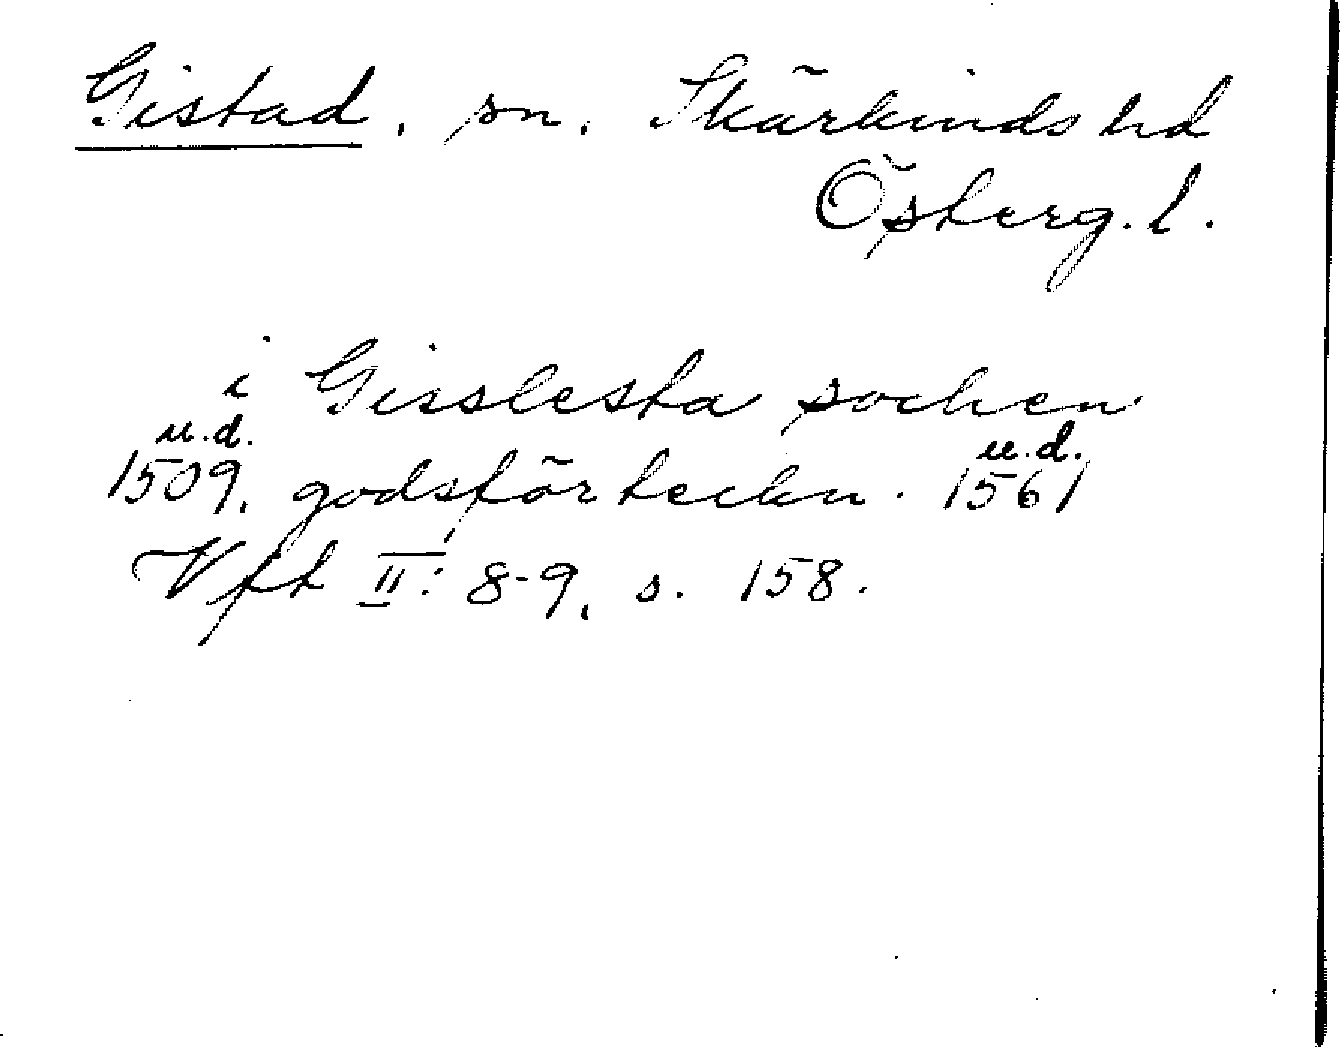 Gistad, sn. Skärkinds hd
Österg. l.
i Gisslesta sochen
u.d. u.d.
1509, godsförteckn. 1561
Vft II: 8-9, s. 158.